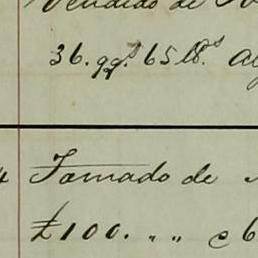 Vendido de
36. qq.s 65 lb.s
Tomado de
£100. " " c 6